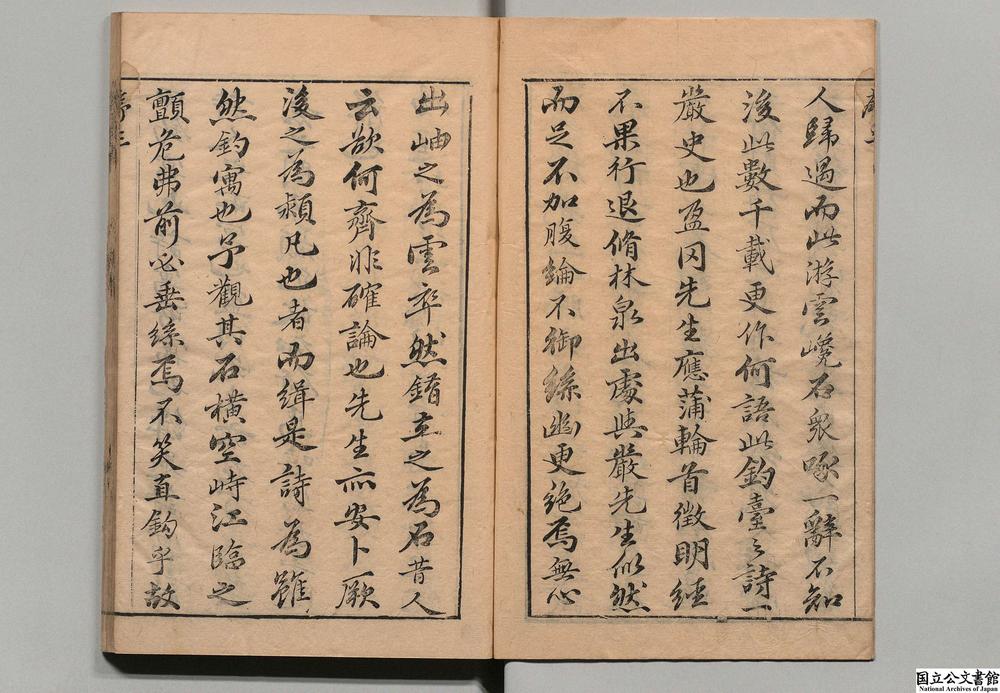 人歸過而此游雲巉石衆啄一辭不知
後此數千載更作何語此釣臺之詩一
嚴史也盈冈先生應蒲輪首徵明經
不果行退脩林泉出處與嚴先生似然
而足不加腹綸不御絲幽更絶焉無心
出岫之為雲卒然錯立之為石昔人
云欲何齊非確論也先生亦安卜厥
後之為頼凡也者而緝是詩為雖
然釣寓也予觀其石橫空峙江臨之
顫危弗前必垂絲焉不笑直鈎乎故
序三
国立公文書館
National Archives of Japan